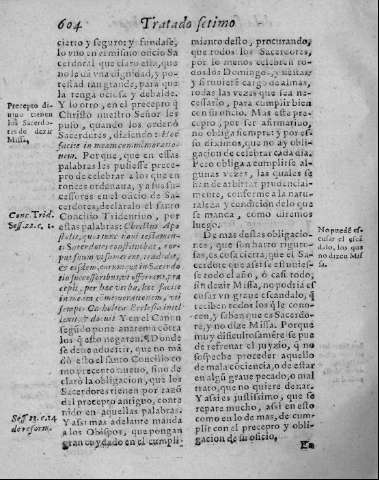 604
Tratado setimo
cierto y seguro: y fundase,
lo vno en el mismo oficio Sa
cerdotal que claro esta, que
no le da vna dignidad, y po-
testad tan grande, para que
la tenga ociosa y debalde.
Y lo otro, en el precepto q̃
Christo nuestro Señor les
puso, quando los ordenò
Sacerdotes, diziendo: Hoc
facite in meam commemoratio-
nem. Porque, que en essas
palabras les pusiesse prece-
pto de celebrar a los que en-
tonces ordenaua, y a sus su-
cessores en el oficio de Sa-
cerdotes, declaralo el santo
Concilio Tridentino, por
estas palabras: Christus Apo
stolis, quos tunc noui testamen-
ti Sacerdotes constituebat, cor-
pus suum vt sumerent, tradidit,
& eisdem, eorumque in Sacerdo
tio successoribus, vt offerrent, præ
cepit, per hæc verba, hoc facite
in meam commemorationem, vti
semper Catholica Ecclesia intel-
lexit, & docuit. Y en el Canon
segũdo pone anatema cõtra
los q̃ esto negaren. ¶ Donde
se deue aduertir, que no mã
dò esto el santo Concilio co
mo precepto nueuo, sino de
clarò la obligacion, que los
Sacerdotes tienen por razõ
del precepto antiguo, conte
nido en aquellas palabras.
Y assi mas adelante manda
a los Obispos, que pongan
gran cuydado en el cumpli-
Precepto di-
uino tienen
los Sacerdo-
tes de dezir
Missa.
Conc. Trid.
Sess. 22. c. 1.
Sess. 23. c. 14
de reform.
miento desto, procurando,
que todos los Sacerdotes,
por lo menos celebren to-
dos los Domingos, y fiestas;
y si tuuieren cargo de almas,
todas las vezes que sea ne-
cessario, para cumplir bien
con su oficio. Mas este pre-
cepto, por ser afirmatiuo,
no obliga siempre; y por es-
so diximos, que no ay obli-
gacion de celebrar cada dia.
Pero obliga a cumplirse al-
gunas vezes, las quales se
han de arbitrar prudencial-
mente, conforme a la natu-
raleza y condicion de lo que
se manda, como diremos
luego.
De mas destas obligacio-
nes, que son harto riguro-
sas, es cosa cierta, que el Sa
cerdote que assi se estuuies-
se todo el año, ò casi todo,
sin dezir Missa, no podria es
cusar vn graue escandalo, q̃
reciben todos los q̃ le cono-
cen, y saben que es Sacerdo-
te, y no dize Missa. Porque
muy dificultosamẽte se pue
de refrenar el juyzio, q̃ no
sospeche proceder aquello
de mala cõciencia, o de estar
en algũ graue pecado, o mal
trato, que no quiere dexar.
Y assi es justissimo, que se
repare mucho, assi en esto
como en lo de mas, de cum-
plir con el precepto y obli-
gacion de su oficio.
No puedẽ es
cusar el escã
dalo, los que
no dizen Mis
sa.
En